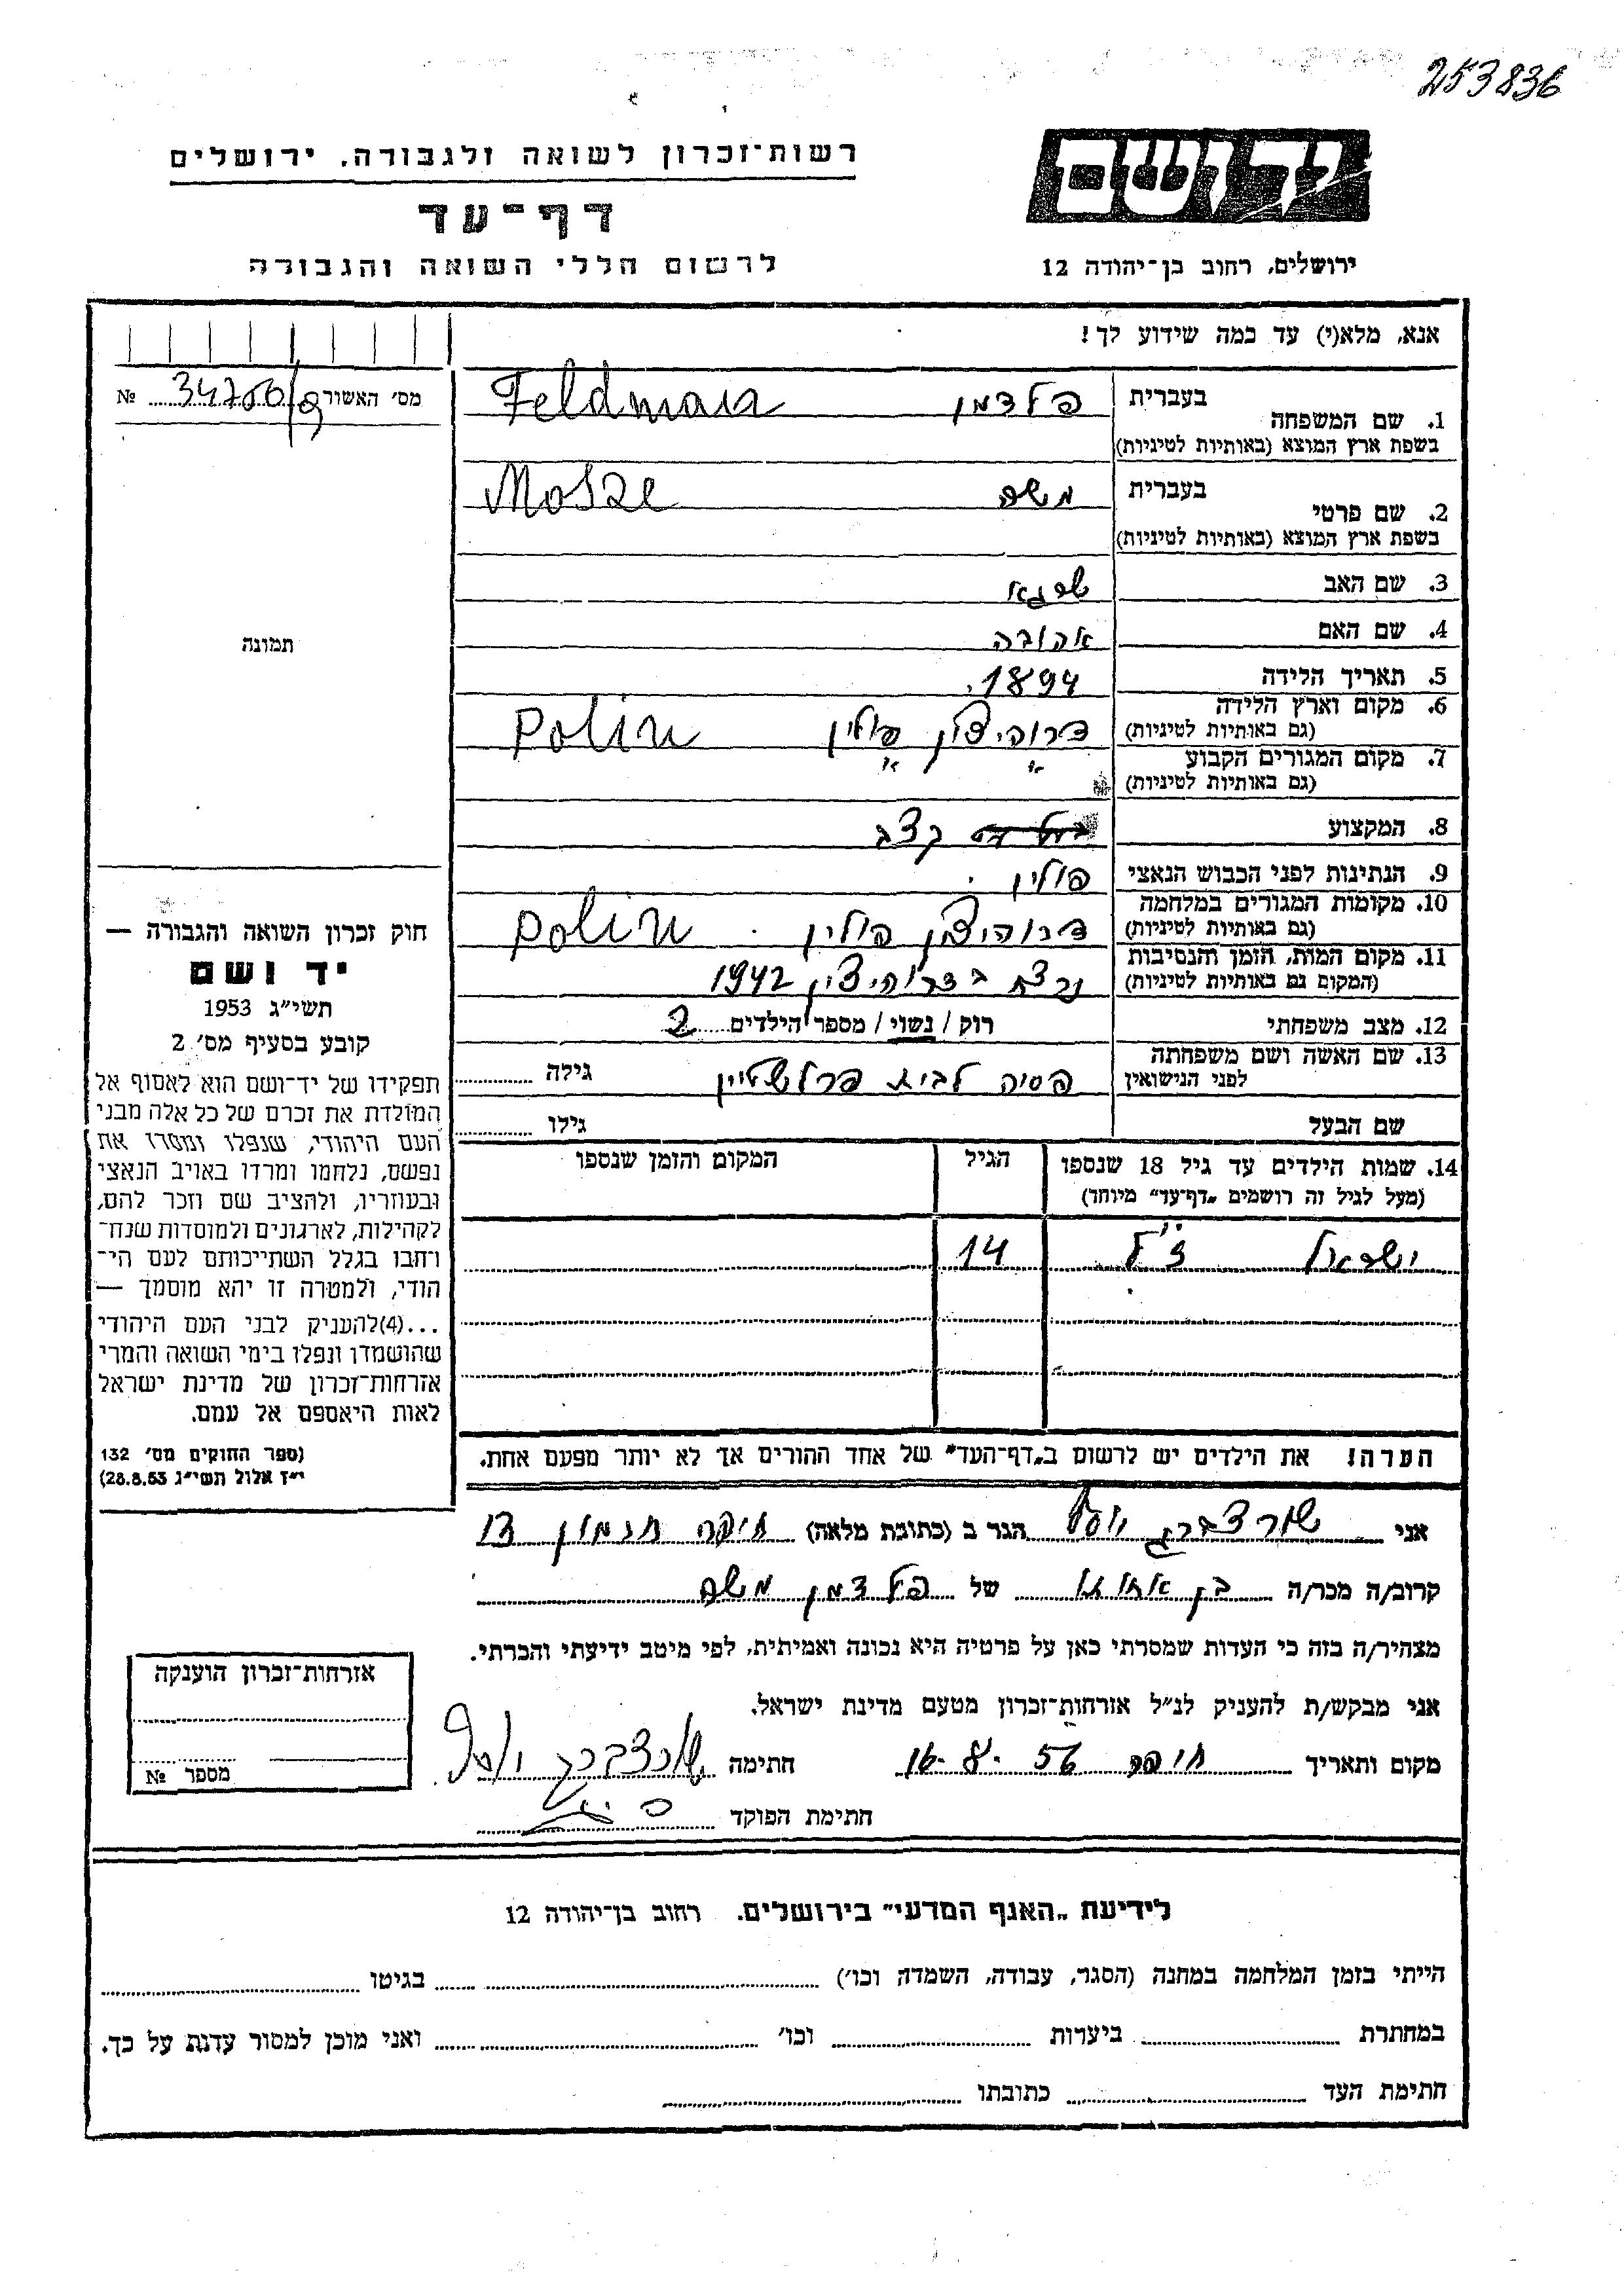 253836
רשות־זכרון לשואה ולגבורה, ירושלים
דף־עד
לרשום חללי השואה והגבורה
יד ושם
ירושלים, רחוב בן־יהודה 12
אנא, מלא(י) עד כמה שידוע לך!
מס׳ האשור № 34706/9
תמונה
1. שם המשפחה בעברית פלדמן Feldman
בשפת ארץ המוצא (באותיות לטיניות)
2. שם פרטי בעברית משה Mosze
בשפת ארץ המוצא (באותיות לטיניות)
3. שם האב שרגא
4. שם האם אהובה
5. תאריך הלידה 1894.
6. מקום וארץ הלידה דרוהיצין פולין Polin
(גם באותיות לטיניות)
7. מקום המגורים הקבוע ״ ״
(גם באותיות לטיניות)
8. המקצוע קצב
9. הנתינות לפני הכבוש הנאצי פולין
10. מקומות המגורים במלחמה דרוהיצין פולין Polin
(גם באותיות לטיניות)
11. מקום המות, הזמן והנסיבות נרצח בדרוהיצין 1942
(המקום גם באותיות לטיניות)
12. מצב משפחתי רוק / נשוי / מספר הילדים 2
13. שם האשה ושם משפחתה פסיה לבית פרלשטיין גילה
לפני הנישואין
שם הבעל גילו
14. שמות הילדים עד גיל 18 שנספו הגיל המקום והזמן שנספו
(מעל לגיל זה רושמים „דף־עד״ מיוחד)
ישראל 14
הערה! את הילדים יש לרשום ב„דף־העד״ של אחד ההורים אך לא יותר מפעם אחת.
חוק זכרון השואה והגבורה —
יד ושם
תשי״ג 1953
קובע בסעיף מס׳ 2
תפקידו של יד־ושם הוא לאסוף אל
המולדת את זכרם של כל אלה מבני
העם היהודי, שנפלו ומסרו את
נפשם, נלחמו ומרדו באויב הנאצי
ובעוזריו, ולהציב שם וזכר להם,
לקהילות, לארגונים ולמוסדות שנח־
רתבו בגלל השתייכותם לעם הי־
הודי, ולמטרה זו יהא מוסמך —
...(4)להעניק לבני העם היהודי
שהושמדו ונפלו בימי השואה והמרי
אזרחות־זכרון של מדינת ישראל
לאות היאספם אל עמם.
(ספר החוקים מס׳ 132
י״ז אלול תשי״ג 28.8.53)
אני שורצברג יוסף הגר ב (כתובת מלאה) חיפה חרמון 13
קרוב/ה מכר/ה בן אחותו של פלדמן משה
מצהיר/ה בזה כי העדות שמסרתי כאן על פרטיה היא נכונה ואמיתית, לפי מיטב ידיעתי והכרתי.
אני מבקש/ת להעניק לנ״ל אזרחות־זכרון מטעם מדינת ישראל.
מקום ותאריך חיפה חתימה שורצברג יוסף
חתימת הפוקד
אזרחות־זכרון הוענקה
מספר №
לידיעת „האגף המדעי״ בירושלים. רחוב בן־יהודה 12
הייתי בזמן המלחמה במחנה (הסגר, עבודה, השמדה וכו׳) בגיטו
במחתרת ביערות וכו׳ ואני מוכן למסור עדות על כך.
חתימת העד כתובתו